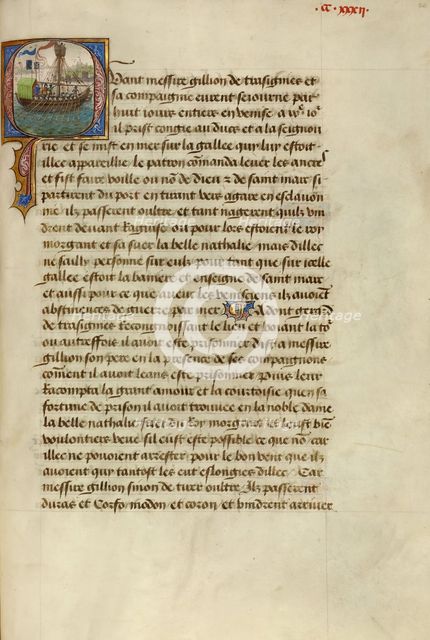 .cc.xxxii.
Quant messire gillion de trasignies et
sa compaignie eurent seiourne par
huit iours entiers en venise a
il prist congie au duc et a la seignou
rie et se mist en mer sur la gallee qui luy estoit
illec appareillie le patron commanda lever les ancres
et fist faire voille ou nom de dieu et de saint marc si
partirent du port en tirant vers en esclauon
nie ilz passerent oultre et tant nagerent quilz vin
drent devant Raguse ou pour lors estoient le roy
morgant et sa suer la belle nathalie mais dillec
ne sailly personne sur eulz pour tant que sur icelle
gallee estoit la baniere et enseigne de saint marc
et aussi pour ce que avec les venisciens ilz avoient
abstinences de guerre par mer Adont gerard
de trasignies Recongnoissant le lieu et voiant la to
ou autreffois il avoit este prisonnier dist a messire
gillion son pere en la presence de ses compaignons
coment il avoit leans este prisonnier Puis leur
Racompta la grant amour et la courtoisie que en sa
fortune de prison il avoit trouvee en la noble dame
la belle nathalie suer du Roy morgant et leust bien
voulontiers veue sil eust este possible ce que non car
illec ne povoient arrester pour le bon vent que ilz
avoient qui tantost les eut eslongies dillec Car
messire gillion sinon de tirer oultre Ilz passerent
duras et Corfo modon et coron et vindrent arriver
heritage
heritage
heritage
heritage